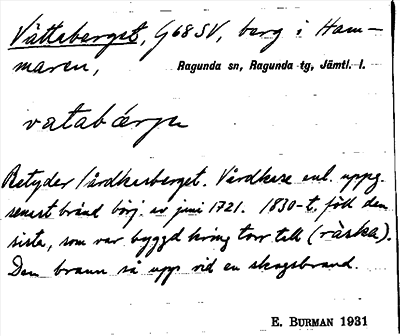 Vättaberget, G68SV, berg i Ham-
maren,
Ragunda sn, Ragunda tg, Jämtl. l.
vatabǽrje
Betyder vårdkasberget. Vårdkase enl. uppg.
senast bränd börj. av juni 1721. 1830-t. föll den
sista, som var byggd kring torr tall (råska).
Den brann så upp vid en skogsbrand.
E. BURMAN 1931